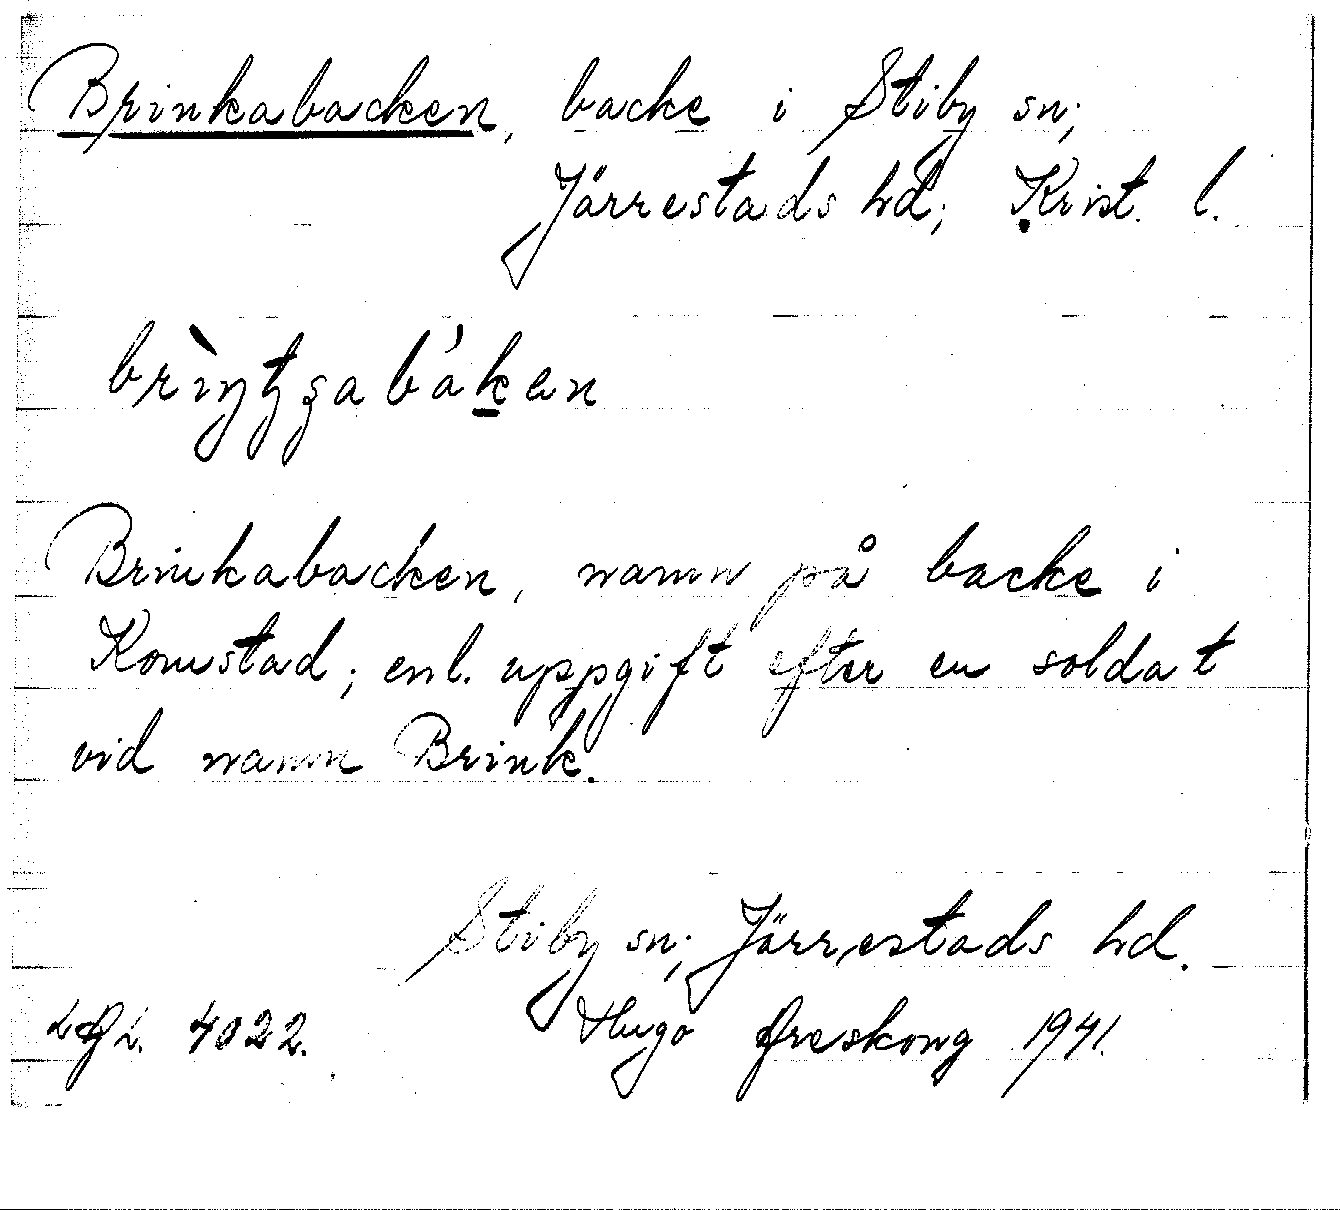 Brinkabacken, backe i Stiby sn;
Järrestads hd; Krist. l.
Brinkabacken, namn på backe i
Komstad; enl. uppgift efter en soldat
vid namn Brink.
Stiby sn; Järrestads hd.
4022. Hugo Areskoug 1941.